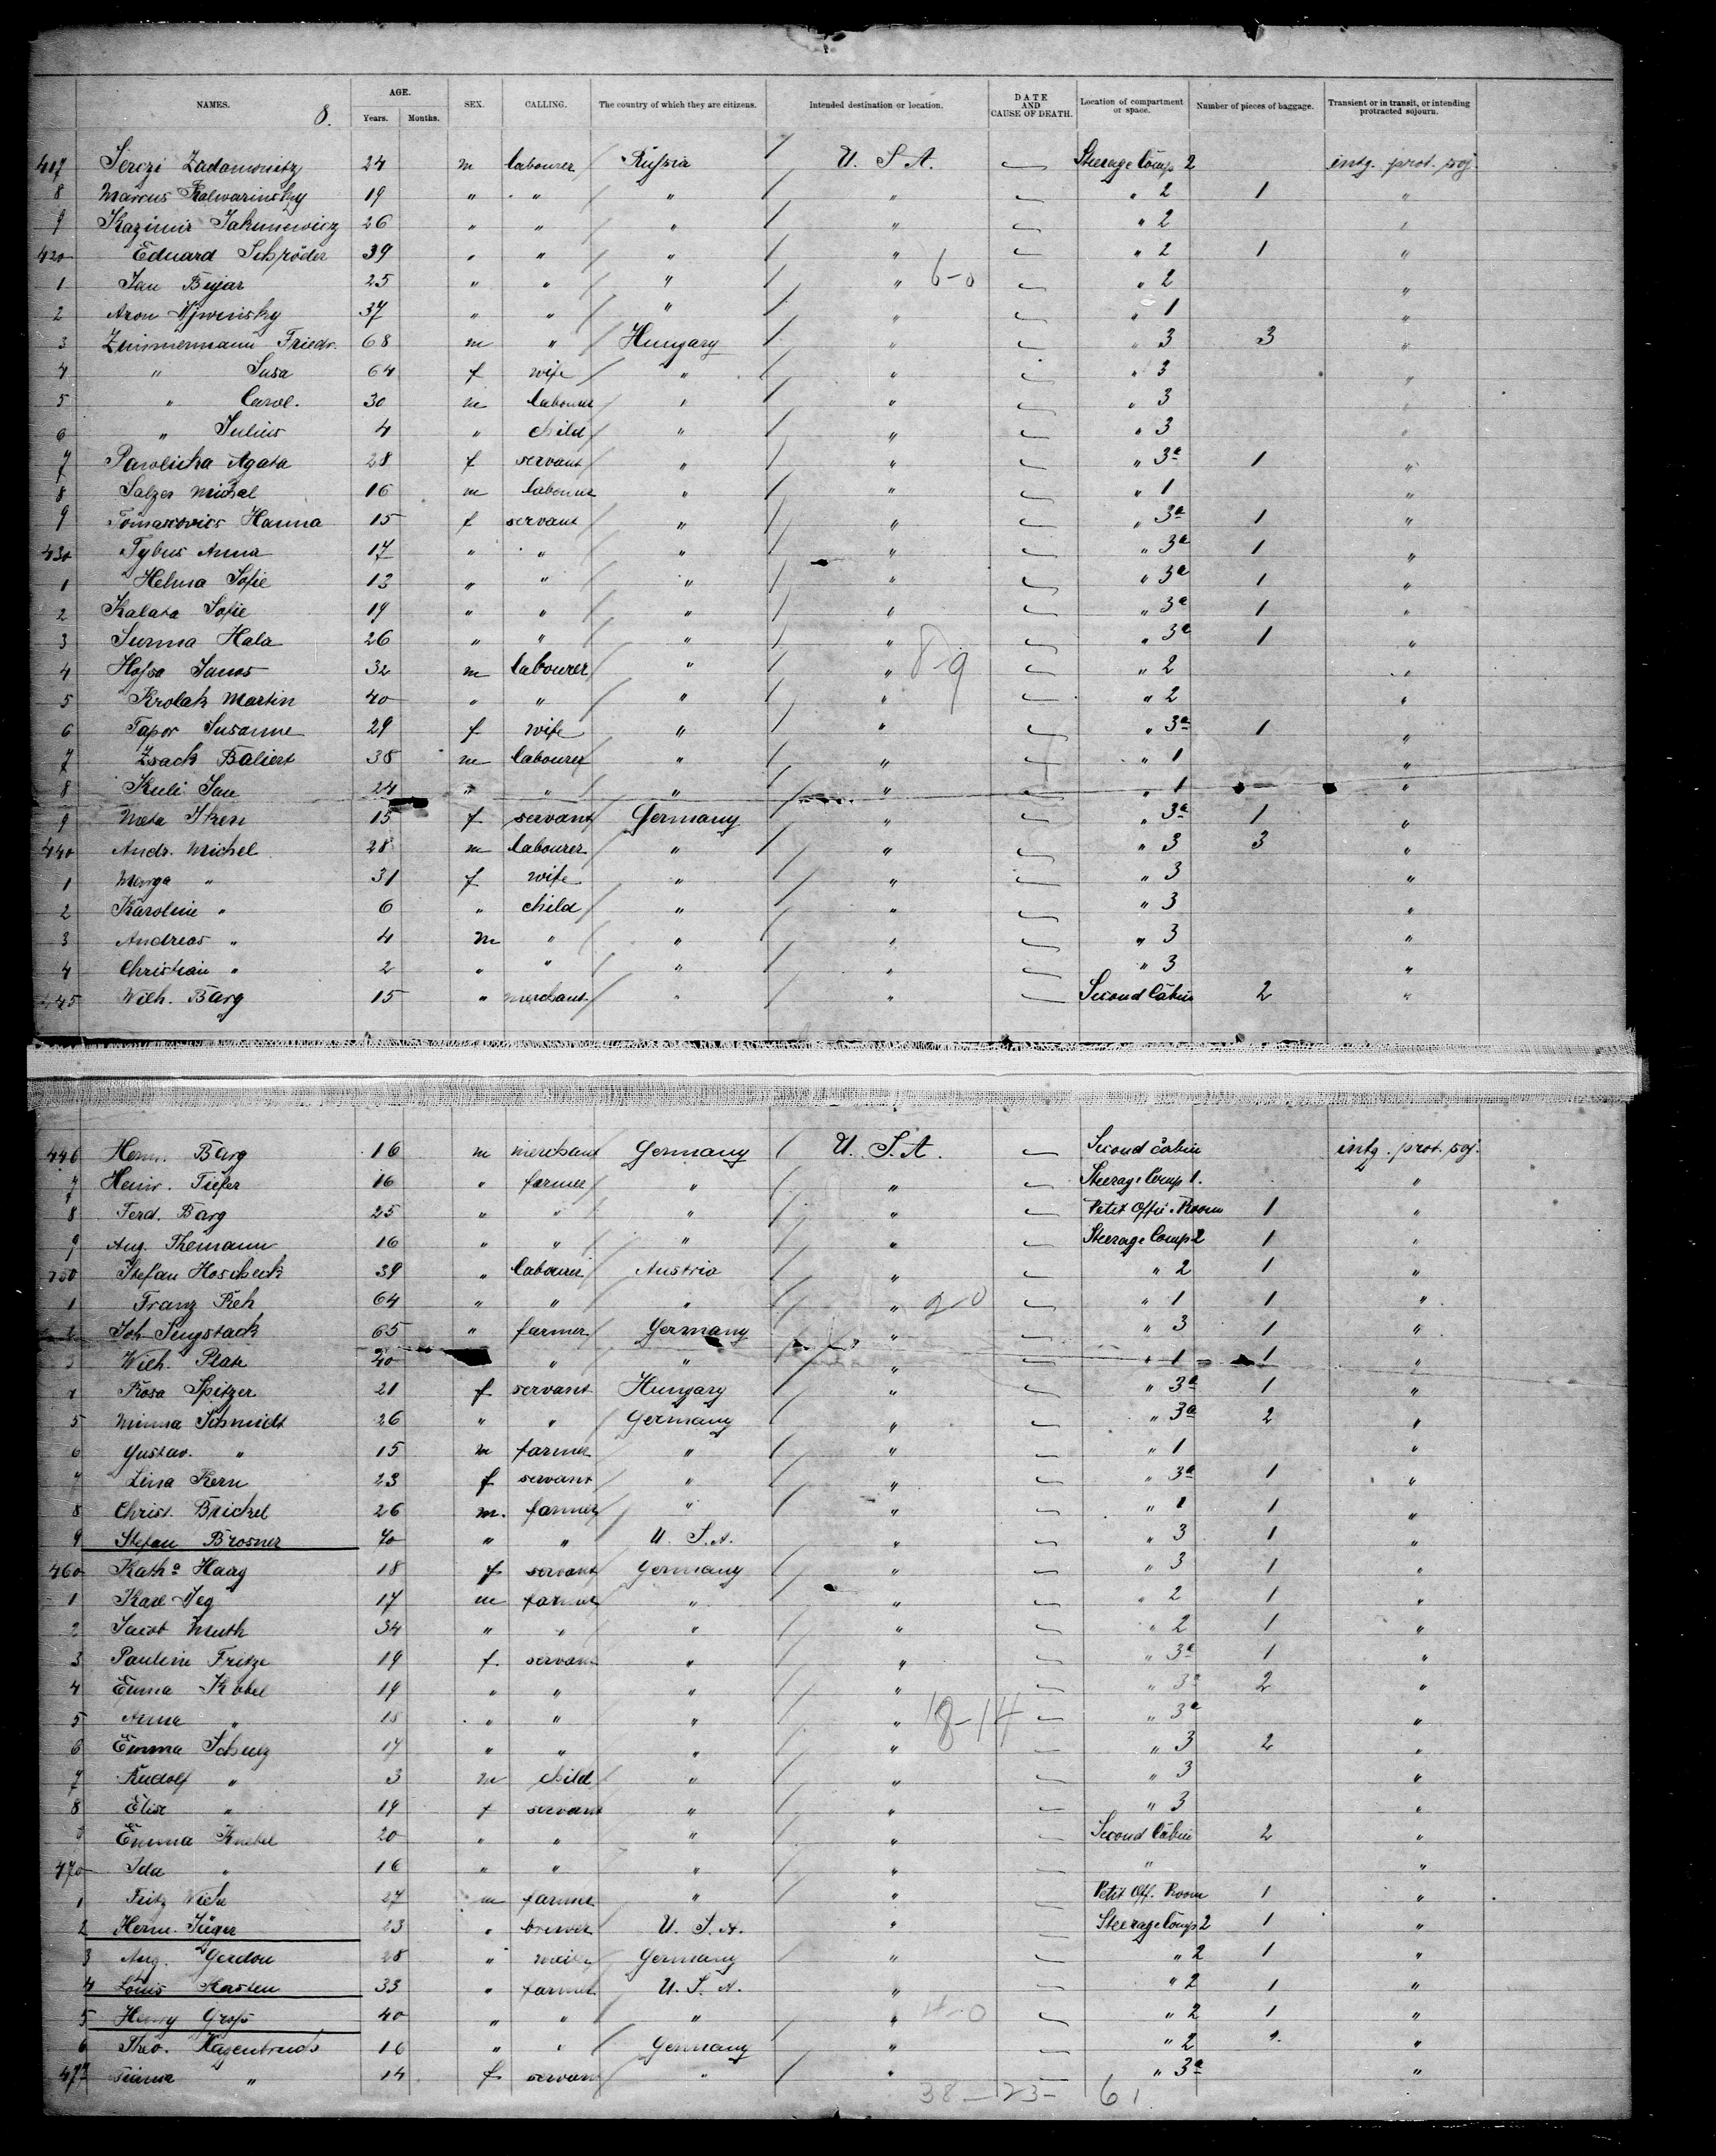 NAMES. 8. AGE. Years. Months. SEX. CALLING. The country of which they are citizens. Intended destination or location. DATE AND CAUSE OF DEATH. Location of compartment or space. Number of pieces of baggage. Transient or in transit, or intending protracted sojourn.
417 Serczi Zadanowitz 24 m labourer Russia U. S. A. Steerage Comp 2 intg. prot. soj.
8 Marcus Kalwarinsky 19 " " " " " 2 1 "
9 Kazimir Jakunewicz 26 " " " " " 2 "
420 Eduard Schröder 39 " " " " " 2 1 "
1 Jan Bujar 25 " " " " 6-0 " 2 "
2 Aron 37 " " " " " 1 "
3 Zimmermann Friedr. 68 m " Hungary " " 3 3 "
4 " Susa 64 f wife " " " 3 "
5 " Carol. 30 m labourer " " " 3 "
6 " Julius 4 " child " " " 3 "
7 Pawlicka Agata 28 f servant " " " 3a 1 "
8 Salzer Michal 16 m labourer " " " 1 "
9 Tomasovics Hanna 15 f servant " " " 3a 1 "
430 Tybus Anna 17 " " " " " 3a 1 "
1 Helma Sofie 13 " " " " " 3a 1 "
2 Kalata Sofie 19 " " " " " 3a 1 "
3 Surma Hala 26 " " " " " 3a 1 "
4 Hossa Janos 32 m labourer " " 8-9 " 2 "
5 Krolak Martin 40 " " " " " 2 "
6 Tapor Susanne 29 f wife " " " 3a 1 "
7 Zsack Baliert 38 m labourer " " " 1 "
8 Kuli Jan 24 " " " " " 1 "
9 Meta Itken 15 f servant Germany " " 3a 1 "
440 Andr. Michel 28 m labourer " " " 3 3 "
1 Marga " 31 f wife " " " 3 "
2 Karoline " 6 " child " " " 3 "
3 Andreas " 4 m " " " " 3 "
4 Christian " 2 " " " " " 3 "
445 Wilh. Barg 15 " merchant " " Second Cabin 2 "
446 Herm. Barg 16 m merchant Germany U. S. A. Second Cabin intg. prot. soj.
7 Heinr. Tiefer 16 " farmer " " Steerage Comp 1. "
8 Ferd. Barg 25 " " " " Petit Offic. Room 1 "
9 Aug. Themann 16 " " " " Steerage Comp 2 1 "
Stefan Hoscheck 39 " labourer Austria " " 2 1 "
1 Franz Reh 64 " " " " 2-0 " 1 1 "
2 Joh. Sengstack 65 " farmer Germany " " 3 1 "
3 Wilh. Plate 20 " " " " 1 1 "
4 Rosa Spitzer 21 f servant Hungary " " 3a 1 "
5 Minna Schmidt 26 " " Germany " " 3a 2 "
6 Gustav. " 15 m farmer " " " 1 "
7 Lina Kern 23 f servant " " " 3a 1 "
8 Christ. Brickel 26 m. farmer " " " 1 1 "
9 Stefan Brosner 70 " " U. S. A. " " 3 1 "
460 Katha Haug 18 f servant Germany " " 3 1 "
1 Karl 17 m farmer " " " 2 1 "
2 Jacob Muth 34 " " " " " 2 1 "
3 Pauline Fritze 19 f. servant " " " 3a 1 "
4 Emma Kobel 19 " " " " " 3a 2 "
5 Anna " 18 " " " " 18-14 " 3a "
6 Emma Schulz 17 " " " " " 3 2 "
7 Rudolf " 3 m child " " " 3 "
8 Elise " 19 f servant " " " 3 "
Emma Knebel 20 " " " " Second Cabin 2 "
470 Ida " 16 " " " " " "
1 Fritz 27 m farmer " " Petit Off. Room 1 "
2 Herm. Jäger 23 " brewer U. S. A. " Steerage Comp 2 1 "
3 Aug. Gerdon 28 " Germany " " 2 1 "
4 Louis Karsten 33 " farmer U. S. A. " " 2 1 "
5 Henry Gross 40 " " " " 4-0 " 2 1 "
6 Theo. 16 " " Germany " " 2 "
477 " 14 f servant " " " 3a "
38-23- 61